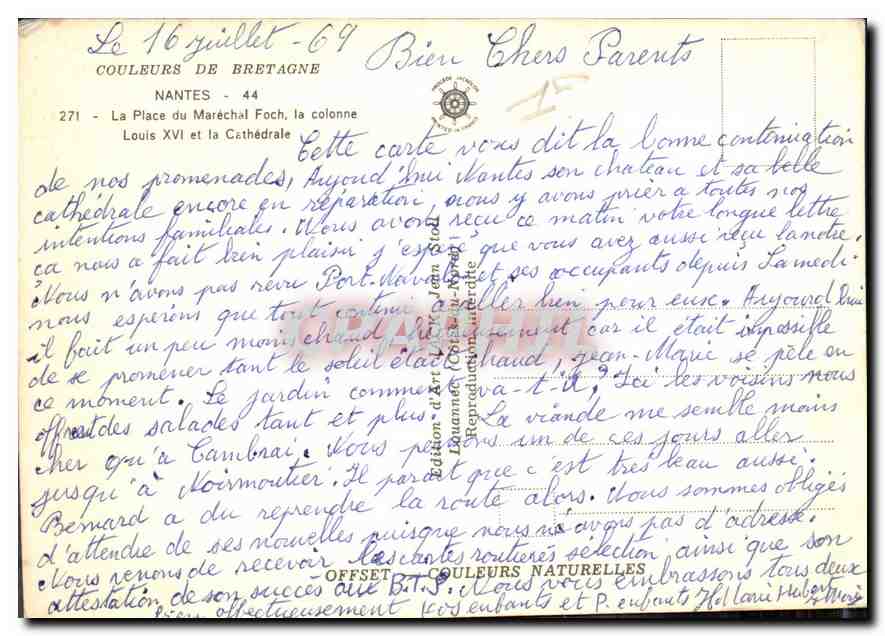 Le 16 juillet - 69
Bien Chers Parents
COULEURS DE BRETAGNE
NANTES - 44
271 - La Place du Maréchal Foch, la colonne
Louis XVI et la Cathédrale
Cette carte vous dit la bonne continuation
de nos promenades, Aujoud'hui Nantes son chateau et sa belle
cathédrale encore en réparation, nous y avons prier a toutes nos
intentions familiales. Nous avons reçu ce matin votre longue lettre
ca nous a fait bien plaisir j'espère que vous avez aussi reçu la notre.
Nous n'avons pas revu Port-Navalo et ses occupants depuis Samedi.
nous esperons que tout continu a aller bien pour eux. Aujourd'hui
il fait un peu moins chaud, heureusement car il était impossible
de se promener tant le soleil était chaud, Jean-Marie se pèle en
ce moment. Le jardin comment va-t-il? Ici les voisins nous
offrent des salades tant et plus. La viande me semble moins
cher qu'a Cambrai. Nous pensons un de ces jours aller
jusqu'à Noirmoutier. Il parait que c'est très beau aussi.
Bernard a du reprendre la route alors. Nous sommes obligés
d'attendre de ses nouvelles puisque nous n'avons pas d'adresse.
Nous venons de recevoir les cartes routières sélection ainsi que son
attestation de son succès aux B.T.S. Nous vous embrassons tous deux
bien affectueusement Vos enfants et P. enfants Hubert
Edition d'Art Jean Stoll
Louannec (Côtes-du-Nord)
Reproduction interdite
OFFSET COULEURS NATURELLES